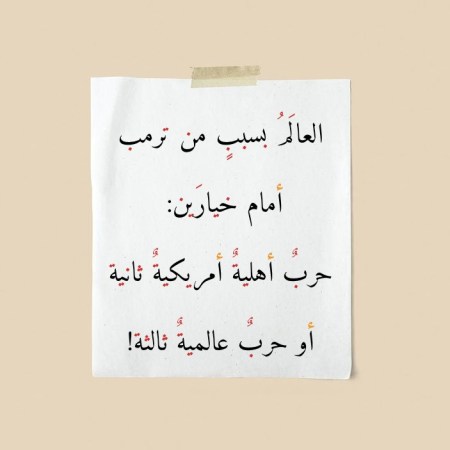 العالَمُ بسببٍ من ترمب
أمام خيارَين:
حربٌ أهليةٌ أمريكيةٌ ثانية
أو حربٌ عالميةٌ ثالثة!